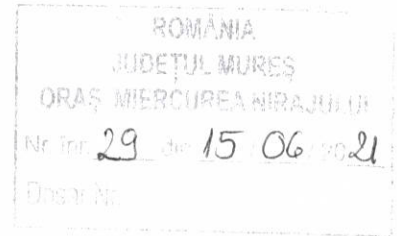 ROMÂNIA
JUDEȚUL MUREȘ
ORAȘ MIERCUREA NIRAJULUI
Nr. înr. 29 din 15 06 2021
Dosar Nr.